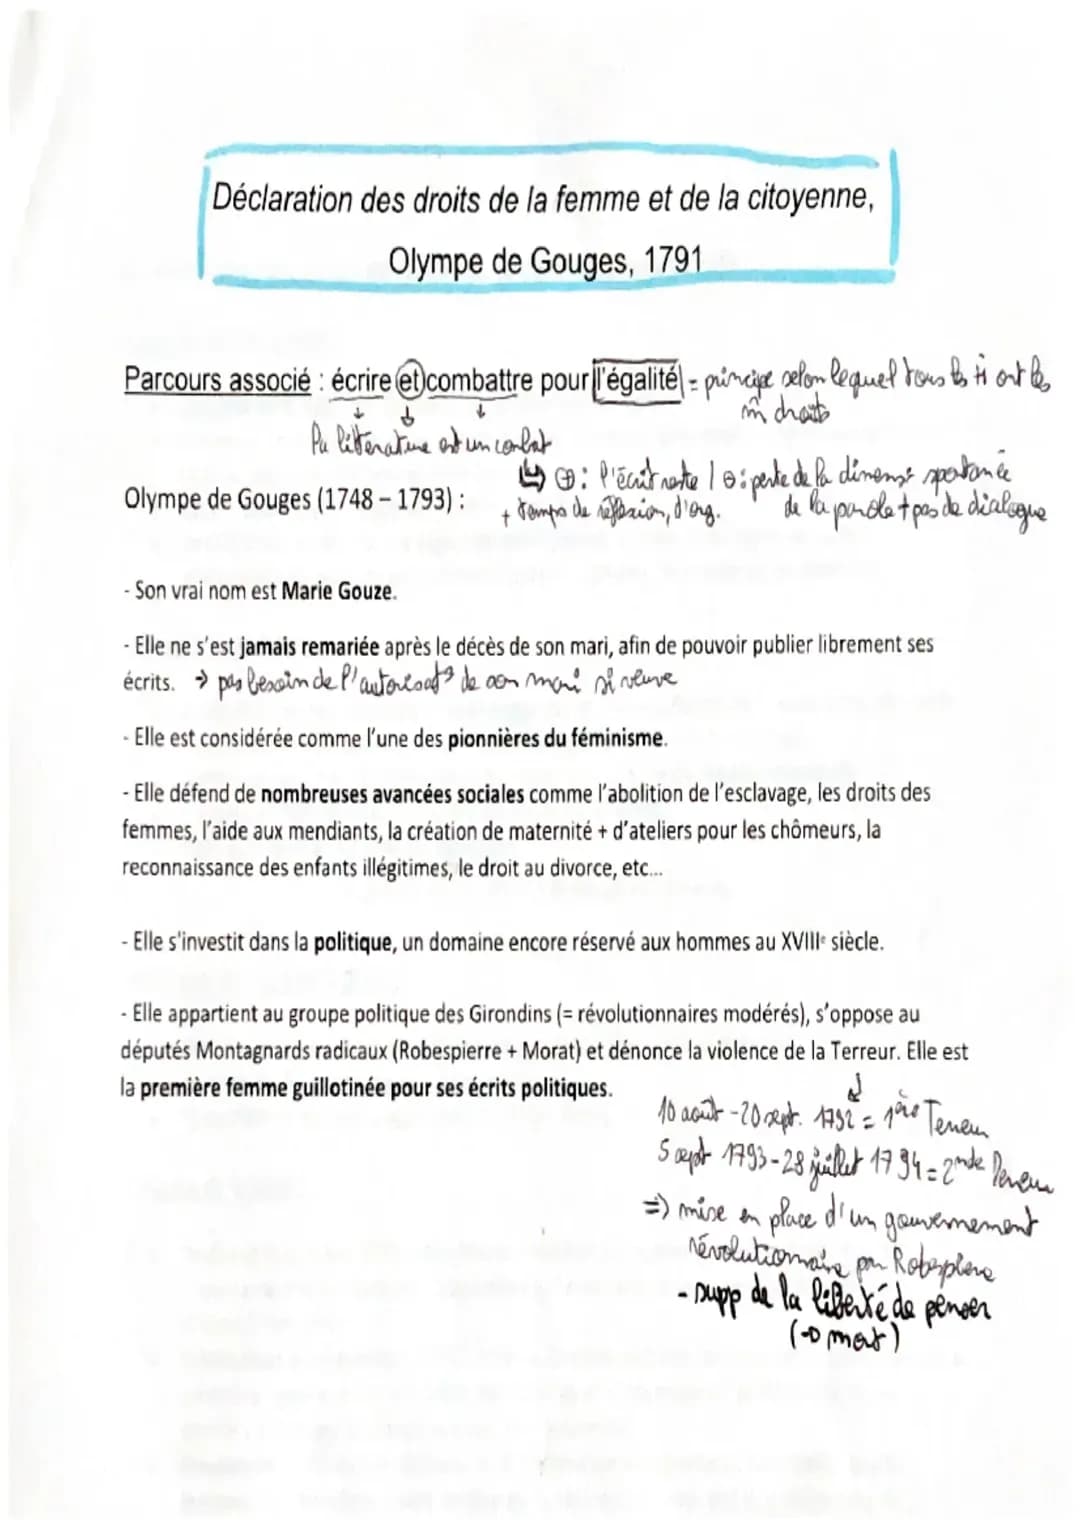 Déclaration des droits de la femme et de la citoyenne,
Olympe de Gouges, 1791
Parcours associé : écrire et combattre pour l'égalité = principe selon lequel tous les H ont les
m̂ droits
la littérature est un combat
↳ ⊕ : l'écrit reste / ⊖ : perte de la dimens° spontanée
Olympe de Gouges (1748 – 1793) :
+ temps de réflexion, d'org. de la parole + pas de dialogue
- Son vrai nom est Marie Gouze.
- Elle ne s'est jamais remariée après le décès de son mari, afin de pouvoir publier librement ses
écrits. → pas besoin de l'autorisat° de son mari si veuve
- Elle est considérée comme l'une des pionnières du féminisme.
- Elle défend de nombreuses avancées sociales comme l'abolition de l'esclavage, les droits des
femmes, l'aide aux mendiants, la création de maternité + d'ateliers pour les chômeurs, la
reconnaissance des enfants illégitimes, le droit au divorce, etc...
- Elle s'investit dans la politique, un domaine encore réservé aux hommes au XVIIIe siècle.
- Elle appartient au groupe politique des Girondins (= révolutionnaires modérés), s'oppose au
députés Montagnards radicaux (Robespierre + Morat) et dénonce la violence de la Terreur. Elle est
la première femme guillotinée pour ses écrits politiques.
10 août - 20 sept. 1792 = 1ère Terreur
5 sept 1793 - 28 juillet 1794 = 2nde Terreur
=> mise en place d'un gouvernement
révolutionnaire par Robespierre
- supp de la liberté de penser
(→ mort)